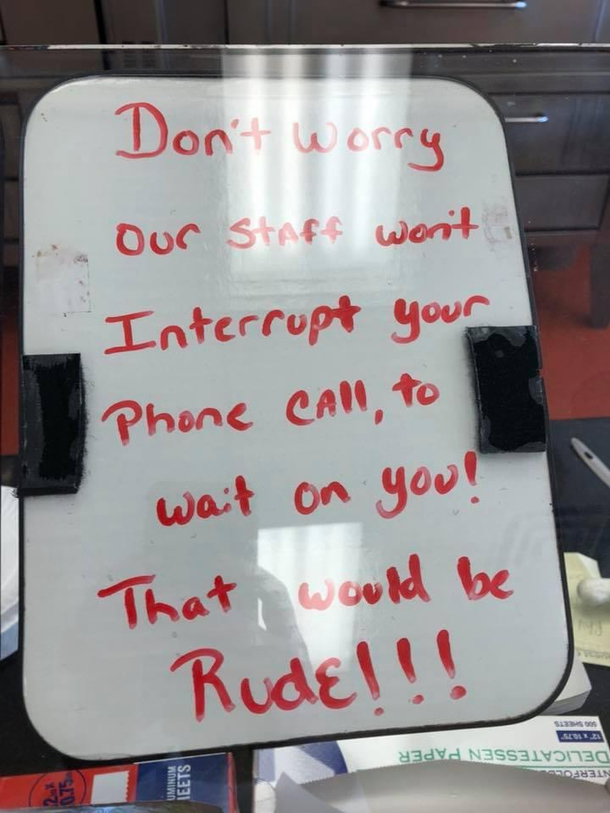 Don't Worry
Our Staff won't
Interrupt your
Phone CAll, to
wait on you!
That would be
Rude!!!
500 SHEETS
12" x 10.75"
INTERFOLDED
DELICATESSEN PAPER
ALUMINUM
SHEETS